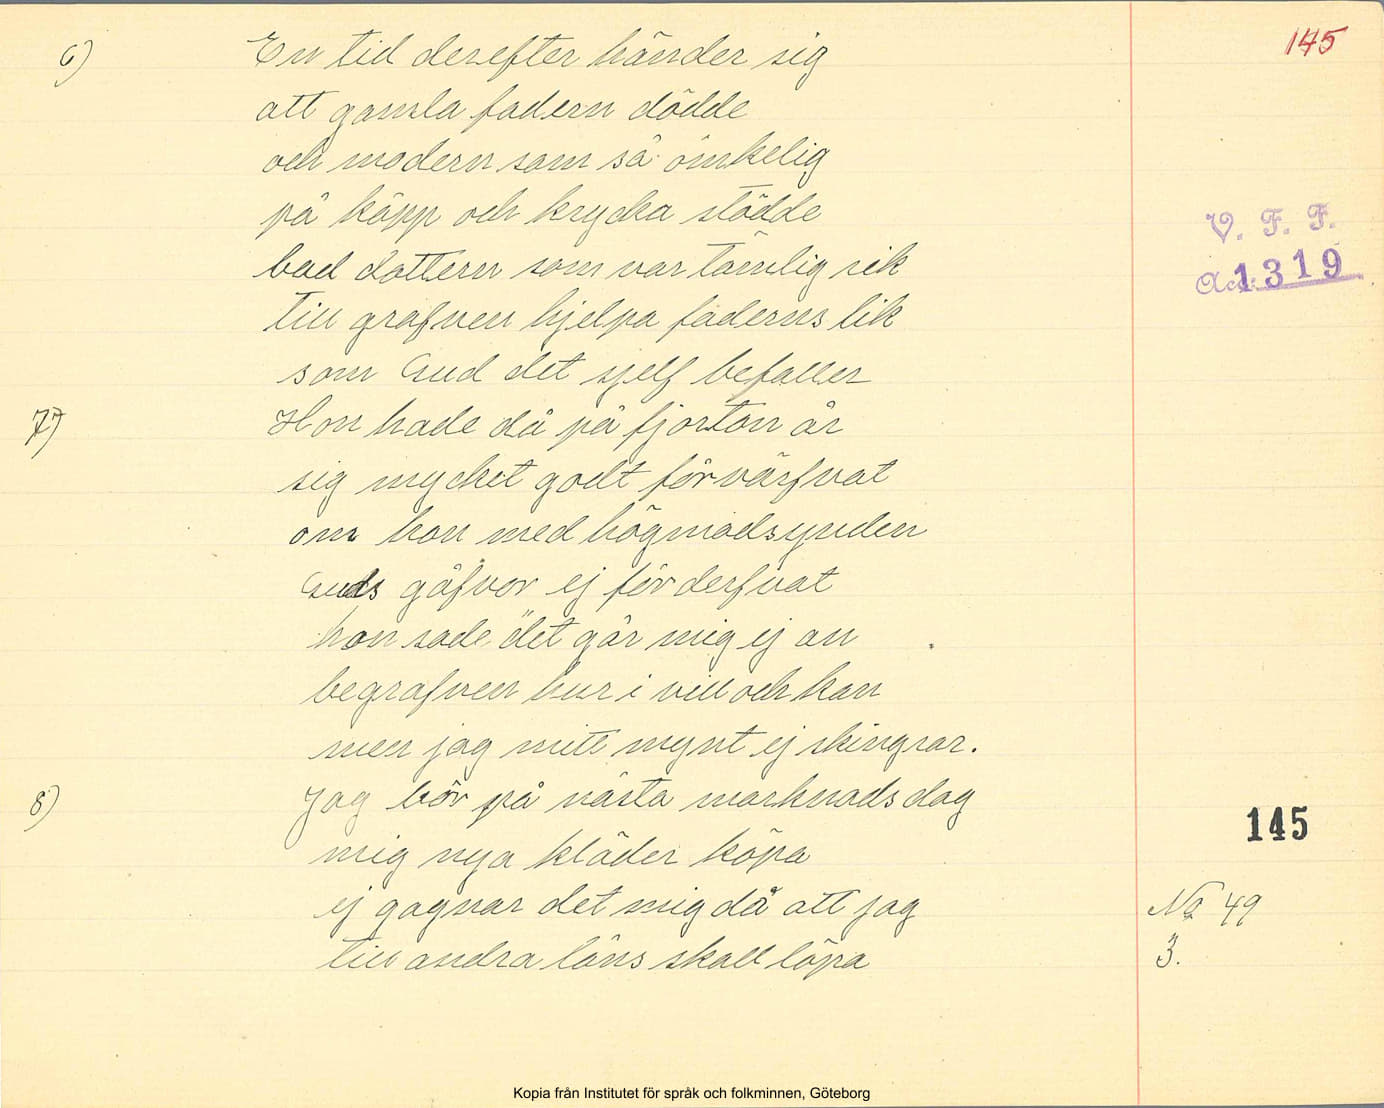 145
6) En tid derefter händer sig
att gamla fadern dödde
och modern som så ömkelig
på käpp och krycka stödde
V. F. F.
bad dottern som var tämlig rik
Acc: 1319
till grafven hjelpa faderns lik
som Gud det sjelf befaller
7) Hon hade då på fjorton år
sig mycket godt förvärfvat
om hon med högmodsynden
Guds gåfvor ej förderfvat
hon sade det går mig ej an
begrafven hur i vill och kan
men jag mitt mynt ej skingrar.
8) Jag bör på nästa marknadsdag
145
mig nya kläder köpa
ej gagnar det mig då att jag
No 49
till andra låns skall löpa
3.
Kopia från Institutet för språk och folkminnen, Göteborg